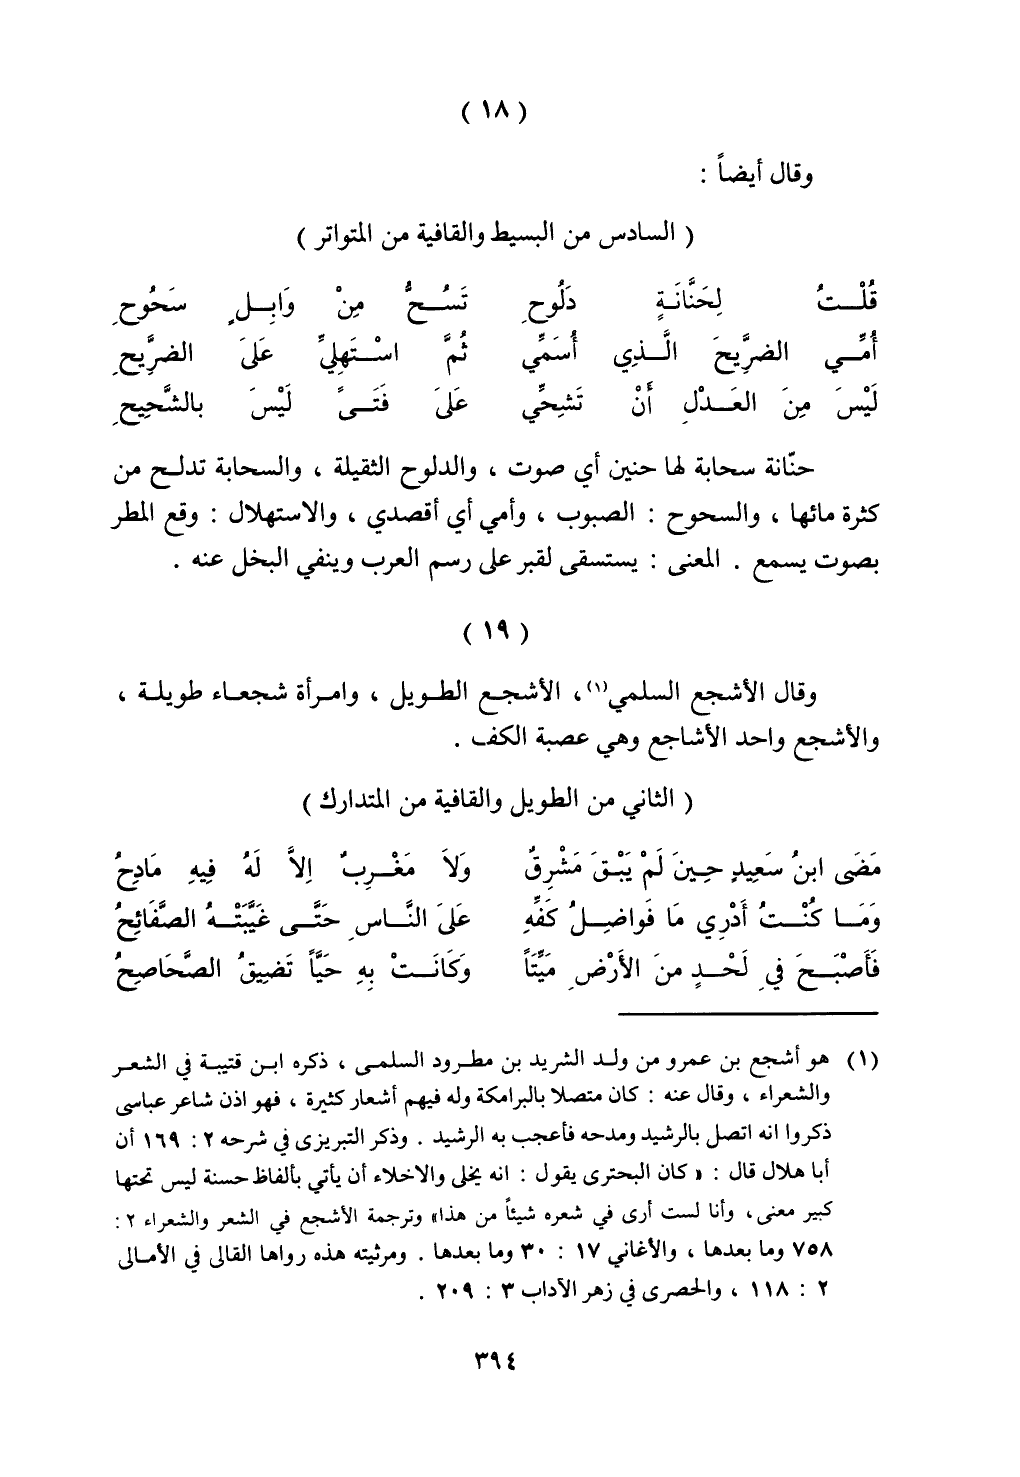 ( ١٨ )
وقال أيضاً :
( السادس من البسيط والقافية من المتواتر )
قُلْــتُ لِحَنَّانَـةٍ دَلُوحِ تَسُــحُّ مِنْ وَابِــلٍ سَحُوحِ
أُمِّــي الضرِّيحَ الَّــذِي أُسَمِّي ثُمَّ اسْـتَهِلِيِّ عَلىَ الضرَّيحِ
لَيْسَ مِنَ العَــدْلِ أَنْ تَشِحِّي عَلىَ فَتَــىً لَيْسَ بالشَّحِيحِ
حنّانة سحابة لها حنين أي صوت ، والدلوح الثقيلة ، والسحابة تدلــح من
كثرة مائها ، والسحوح : الصبوب ، وأمي أي أقصدي ، والاستهلال : وقع المطر
بصوت يسمع . المعنى : يستسقى لقبر على رسم العرب وينفي البخل عنه .
( ١٩ )
وقال الأشجع السلمي(١)، الأشجــع الطــويل ، وامـرأة شجعـاء طويلـة ،
والأشجع واحد الأشاجع وهي عصبة الكف .
( الثاني من الطويل والقافية من المتدارك )
مَضَى ابنُ سَعِيدٍ حِـينَ لَمْ يَبْـقَ مَشْرِقٌ وَلاَ مَغْـرِبٌ اِلاَّ لَهُ فِيهِ مَادِحُ
وَمَــا كُنْــتُ أَدْرِي مَا فَواضِــلُ كَفِّهِ عَلىَ النَّـاسِ حَتَّــى غَيَّبَتْــهُ الصَّفَائِحُ
فَأَصْبَــحَ فيِ لَحْــدٍ منَ الأَرْضِ مَيِّتَاً وَكَانَــتْ بِهِ حَيَّاً تَضِيقُ الصَّحَاصِحُ
(١) هو أشجع بن عمرو من ولـد الشريد بن مطـرود السلمـى ، ذكره ابـن قتيبـة في الشعـر
والشعراء ، وقال عنه : كان متصلا بالبرامكة وله فيهم أشعار كثيرة ، فهو اذن شاعر عباسى
ذكروا انه اتصل بالرشيد ومدحه فأعجب به الرشيد . وذكر التبريزى في شرحه ٢ : ١٦٩ أن
أبا هلال قال : « كان البحترى يقول : انه يخلى والاخلاء أن يأتي بألفاظ حسنة ليس تحتها
كبير معنى، وأنا لست أرى في شعره شيئاً من هذا» وترجمة الأشجع في الشعر والشعراء ٢ :
٧٥٨ وما بعدها ، والأغاني ١٧ : ٣٠ وما بعدها . ومرثيته هذه رواها القالى في الأمـالى
٢ : ١١٨ ، والحصرى في زهر الآداب ٣ : ٢٠٩ .
٣٩٤